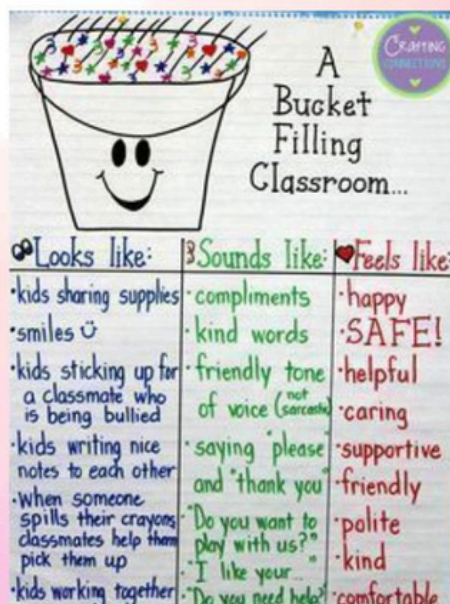 CRAFTING
CONNECTIONS
A
Bucket
Filling
Classroom...
Looks like:
•kids sharing supplies
•smiles
•kids sticking up for
a classmate who
is being bullied
•kids writing nice
notes to each other
•When someone
spills their crayons,
classmates help them
pick them up
•kids working together
Sounds like:
•compliments
•kind words
•friendly tone
of voice (not
sarcastic)
•saying "please"
and "thank you"
•"Do you want to
play with us?"
•"I like your..."
•"Do you need help?"
Feels like:
•happy
•SAFE!
•helpful
•caring
•supportive
•friendly
•polite
•kind
•comfortable